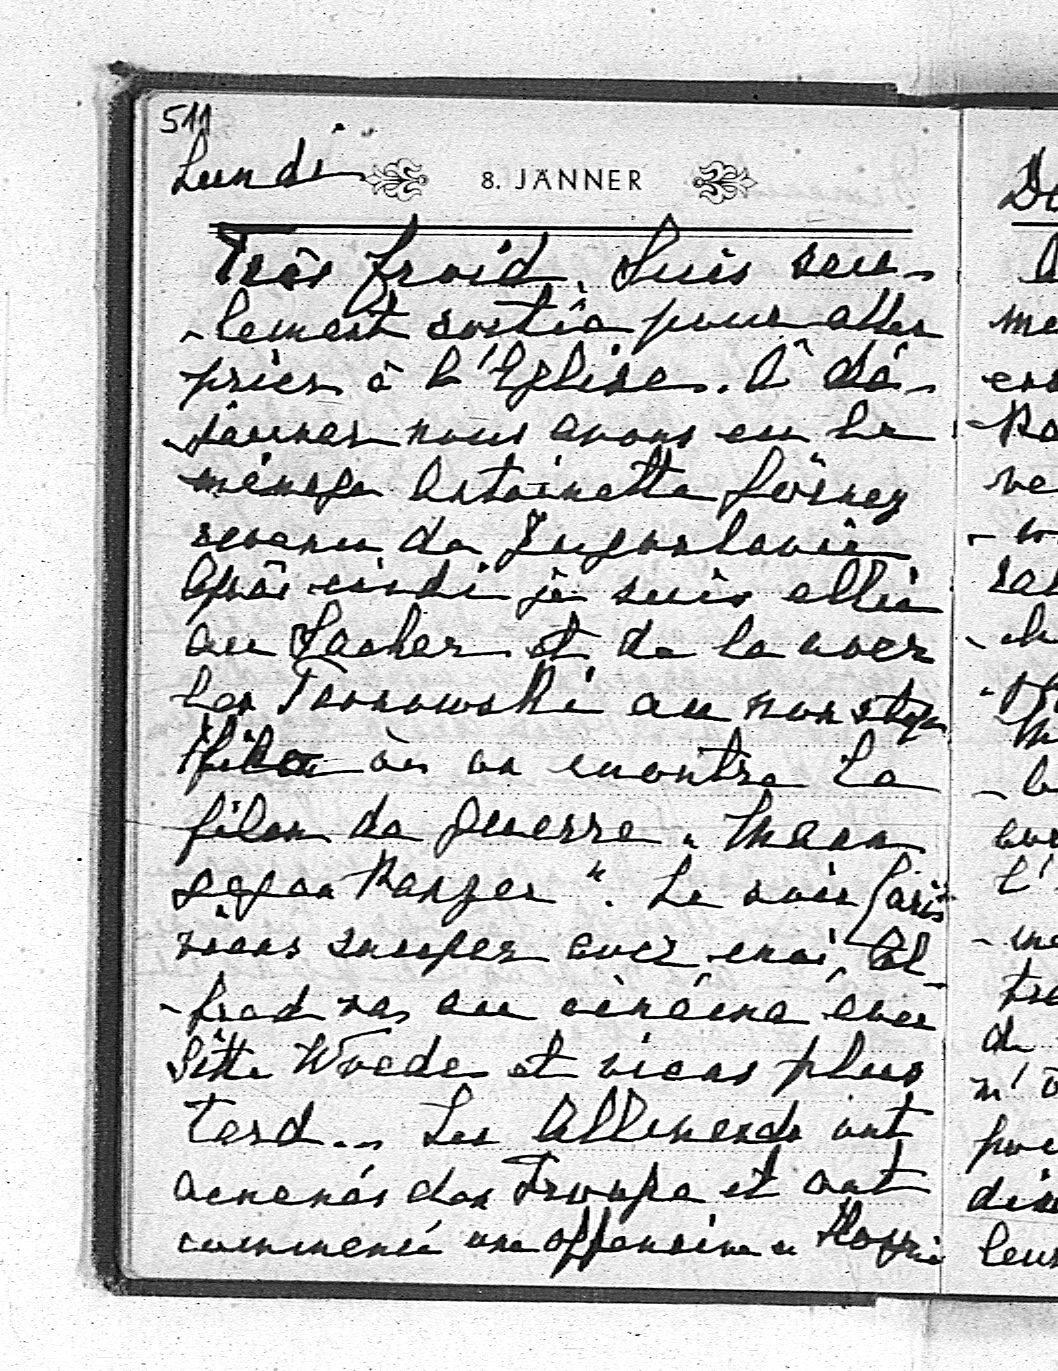 511
Lundi 8. JÄNNER
Très froid. Suis seu-
-lement sortie pour aller
prier à l'Eglise. A dé-
-jeuner nous avons eu le
ménage Antoinette
revenu de Jugoslavie
Après midi je suis allée
au Sacher et de la avec
les Tarnowski au
où on montre le
film de guerre "Mann
gegen Panzer". Le soir
viens souper avec moi, Al-
-fred va au cinéma avec
Sitta Wrede et viens plus
tard... Les Allemends ont
amenés des Troupe et ont
commencé une offensive
Do
me
ve
l'
de
leur